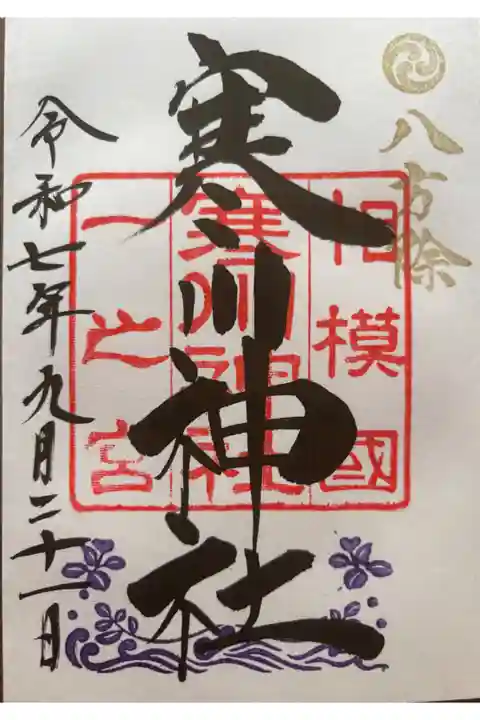 八方除
寒川神社
相模國
寒川神社
一之宮
令和七年九月二十一日